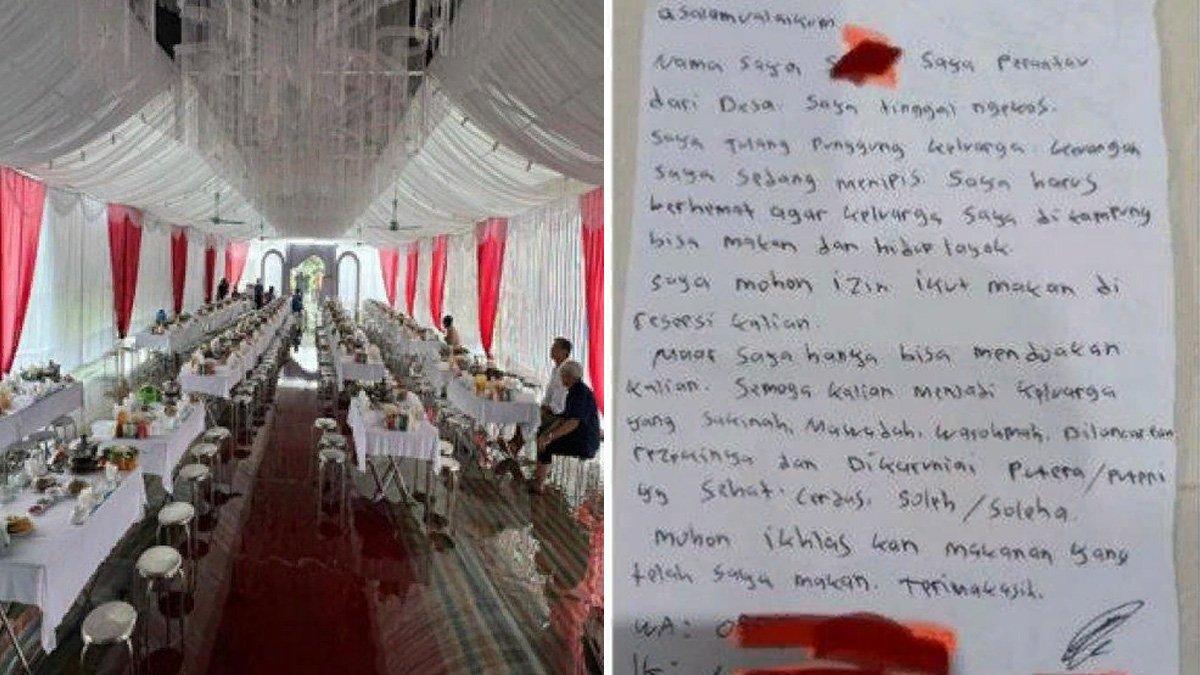 asalamualaikum.
Nama saya S Saya Perantau
dari Desa. Saya tinggal ngekos.
Saya Tulang Punggung keluarga. keuangan
saya sedang menipis. Saya harus
berhemat agar keluarga saya di kampung
bisa makan dan hidup layak.
saya mohon izin ikut makan di
resepsi kalian.
Maaf Saya hanya bisa mendoakan
kalian. Semoga kalian menjadi keluarga
yang Sakinah, Mawadah, Warohmah. Dilancarkan
rezekinya dan Dikaruniai Putera/puteri
yg Sehat. Cerdas. Soleh/Soleha.
mohon ikhlas kan makanan yang
telah saya makan. Terimakasih.
WA: 0